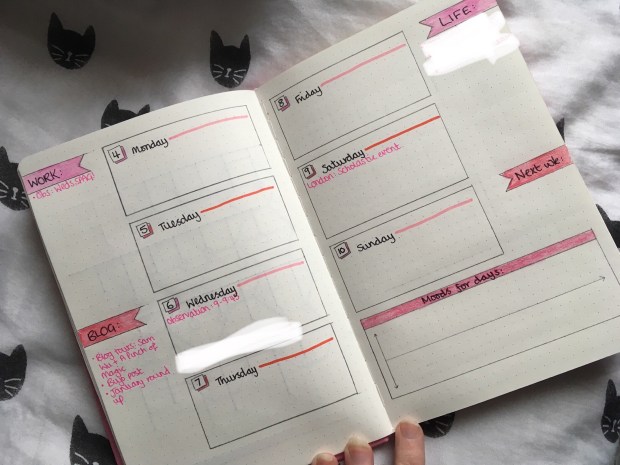 WORK:
• Obs: Weds
4 Monday
5 Tuesday
6 Wednesday
Observation: 9-9:45
7 Thursday
BLOG:
• Blog tours: Sam
Wu + A Pinch of
magic
• BuJo post
• January round
up
8 Friday
9 Saturday
London: Scholastic event
10 Sunday
LIFE:
Next wk:
Moods for days: